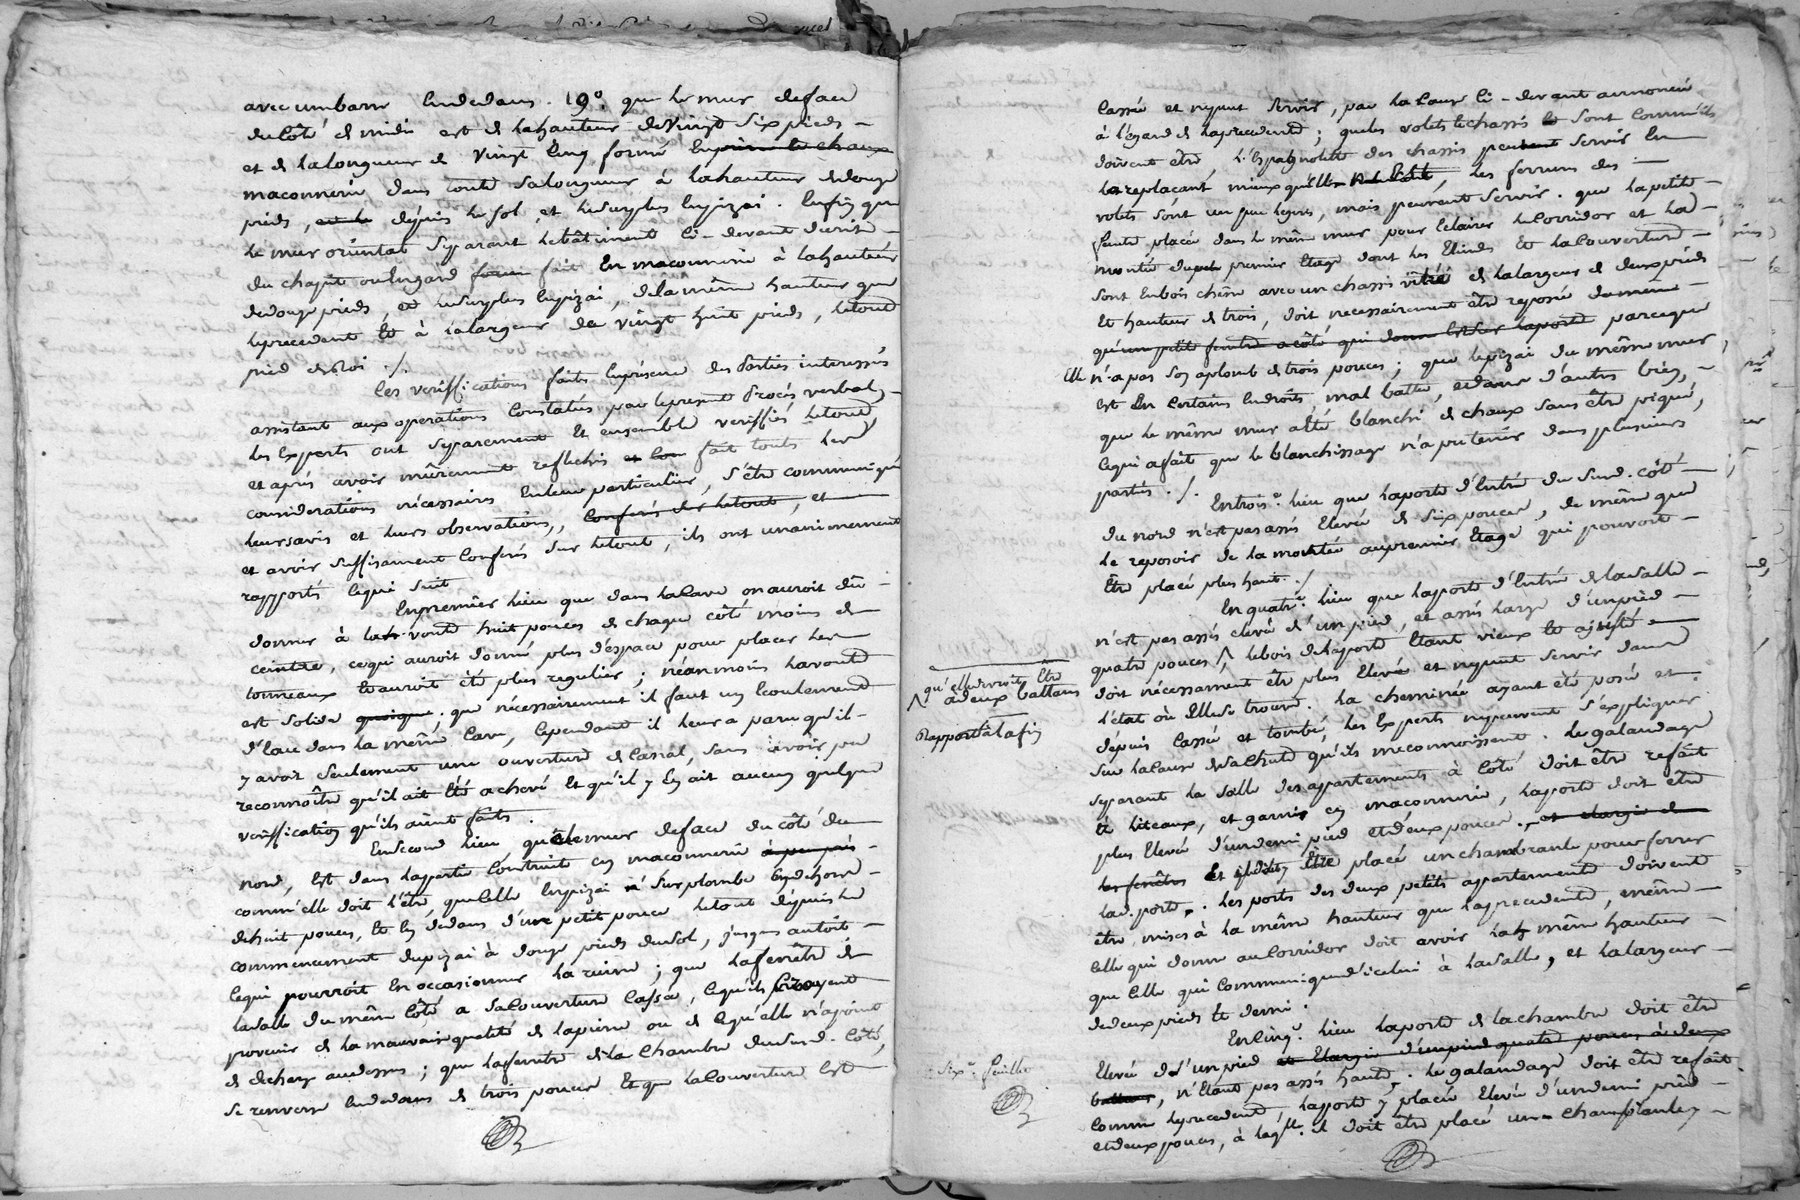 avec un barre en dedans. 19.° que le mur de face
du côté de midi est de la hauteur de vingt six pieds
et de la longueur de vingt cinq formé en maconnerie
maconnerie dans toute sa longueur à la hauteur de douze
pieds, depuis le sol et le surplus en pizai. Enfin que
le mur oriental separant le bâtiment ci-devant decrit
du chapit ou engard fait en maconnerie à la hauteur
de douze pieds, et le surplus en pizai, de la même hauteur que
le precedent et à la largeur de vingt huit pieds, le tout
pied de Roi ./.
Ces veriffications faites en présence des Parties interessés
assistant aux operations constatés par le present Procès verbal,
les Experts ont separement et ensemble veriffiés le tout
et après avoir mûrement reflechis et fait touts les
considerations nécessaires en leur particulier, s'être communiqué
leurs avis et leurs observations, conferés sur le tout, et
et avoir suffisament conferés sur le tout, ils ont unanimement
rapportés ce qui suit
En premier lieu que dans la cave on auroit dû
donner à la voute huit pouces de chaque côté moins de
ceintre, ce qui auroit donné plus d'espace pour placer les
tonneaux et auroit été plus regulier; néanmoins la voute
est solide quoique; que nécessairement il faut un écoulement
d'eau dans la même cave, cependant il leur a paru qu'il
y avoit seulement une ouverture de canal, sans avoir pu
reconnoître qu'il ait été achevé et qu'il y en ait aucun quelque
veriffication qu'ils aient faits.
En second lieu, que le mur de face du côté du
nord, est dans la partie construite en maconnerie à peu près
comm'elle doit l'être, que celle en pizai surplombe en dehors
de huit pouces, et en dedans d'un petit pouce le tout depuis le
commencement du pizai à douze pieds du sol, jusques au toit
ce qui pourroit en occasionner la ruine; que la fenêtre de
la salle du même côté a sa couverture cassée, ce qu'ils croyent
provenir de la mauvaise qualité de la pierre ou de ce qu'elle n'a point
de decharge au dessus; que la fenetre de la chambre du sud. côté,
se renverse en dedans de trois pouces et que la couverture est
cassée et ne peut servir, par la cause ci-devant annoncée
à l'égard de la precedente; que les volets le chassis et sont comme ils
doivent être l'espagnolette des chassis peut servir en
la replaçant mieux qu'elle les ferrures des
volets sont un peu legers, mais peuvent servir. que la petite
fenetre placée dans le même mur pour eclairer le corridor et la
montée du premier etage dont les et la couverture
sont en bois chêne avec un chassis vitré de la largeur de deux pieds
et hauteur de trois, doit necessairement être reposée de même
qu'un petite fenetre a côté qui donne la porte parceque
Elle n'a pas son aplomb de trois pouces; que le pizai du même mur
est en certains endroits mal battu, et dans d'autres bien,
que le même mur a été blanchi de chaux sans être piqué,
ce qui a fait que le blanchissage n'a pu tenir dans plusieurs
parties ./.
En trois.e lieu que la porte d'entrée du sud. côté
du nord n'est pas assés elevée de six pouces, de même que
le reposoir de la montée au premier etage qui pouvoit
être placé plus haut ./
En quatr.e lieu que la porte d'entrée de la salle
n'est pas assés elevée d'un pied, et assés large d'un pied
quatre pouces /\ le bois de la porte etant vieux et ajusté
doit nécessairement être plus elevé et ne peut servir dans
l'état où elle se trouve. La cheminée ayant été posée et
depuis cassée et tombée, les Experts ne peuvent s'expliquer
sur la cause de sa chute qu'ils méconnoissent. Le galandage
separant la salle des appartements à côté doit être refait
et liteaux, et garnis en maconnerie, la porte doit être
plus elevée d'un demi pied et deux pouces, et elargie de
les fenêtres et être placé un chambranle pour ferrer
lad. porte. Les portes des deux petits appartements doivent
être mises à la même hauteur que la precedente, même
celle qui donne au corridor doit avoir la même hauteur
que celle qui communique d'icelui à la salle, et la largeur
de deux pieds et demi.
En cinq.e lieu la porte de la chambre doit être
elevée d'un pied et elargie d'un pied quatre pouces à deux
battans, n'etant pas assés haute. Le galandage doit être refait
comme le precedent, la porte y placée elevée d'un demi pied
et deux pouces, à laq.lle il doit être placé une chambranle,
/\ qu'elle devroit être
à deux battans
Rapporté à la fin
Six.e feuille